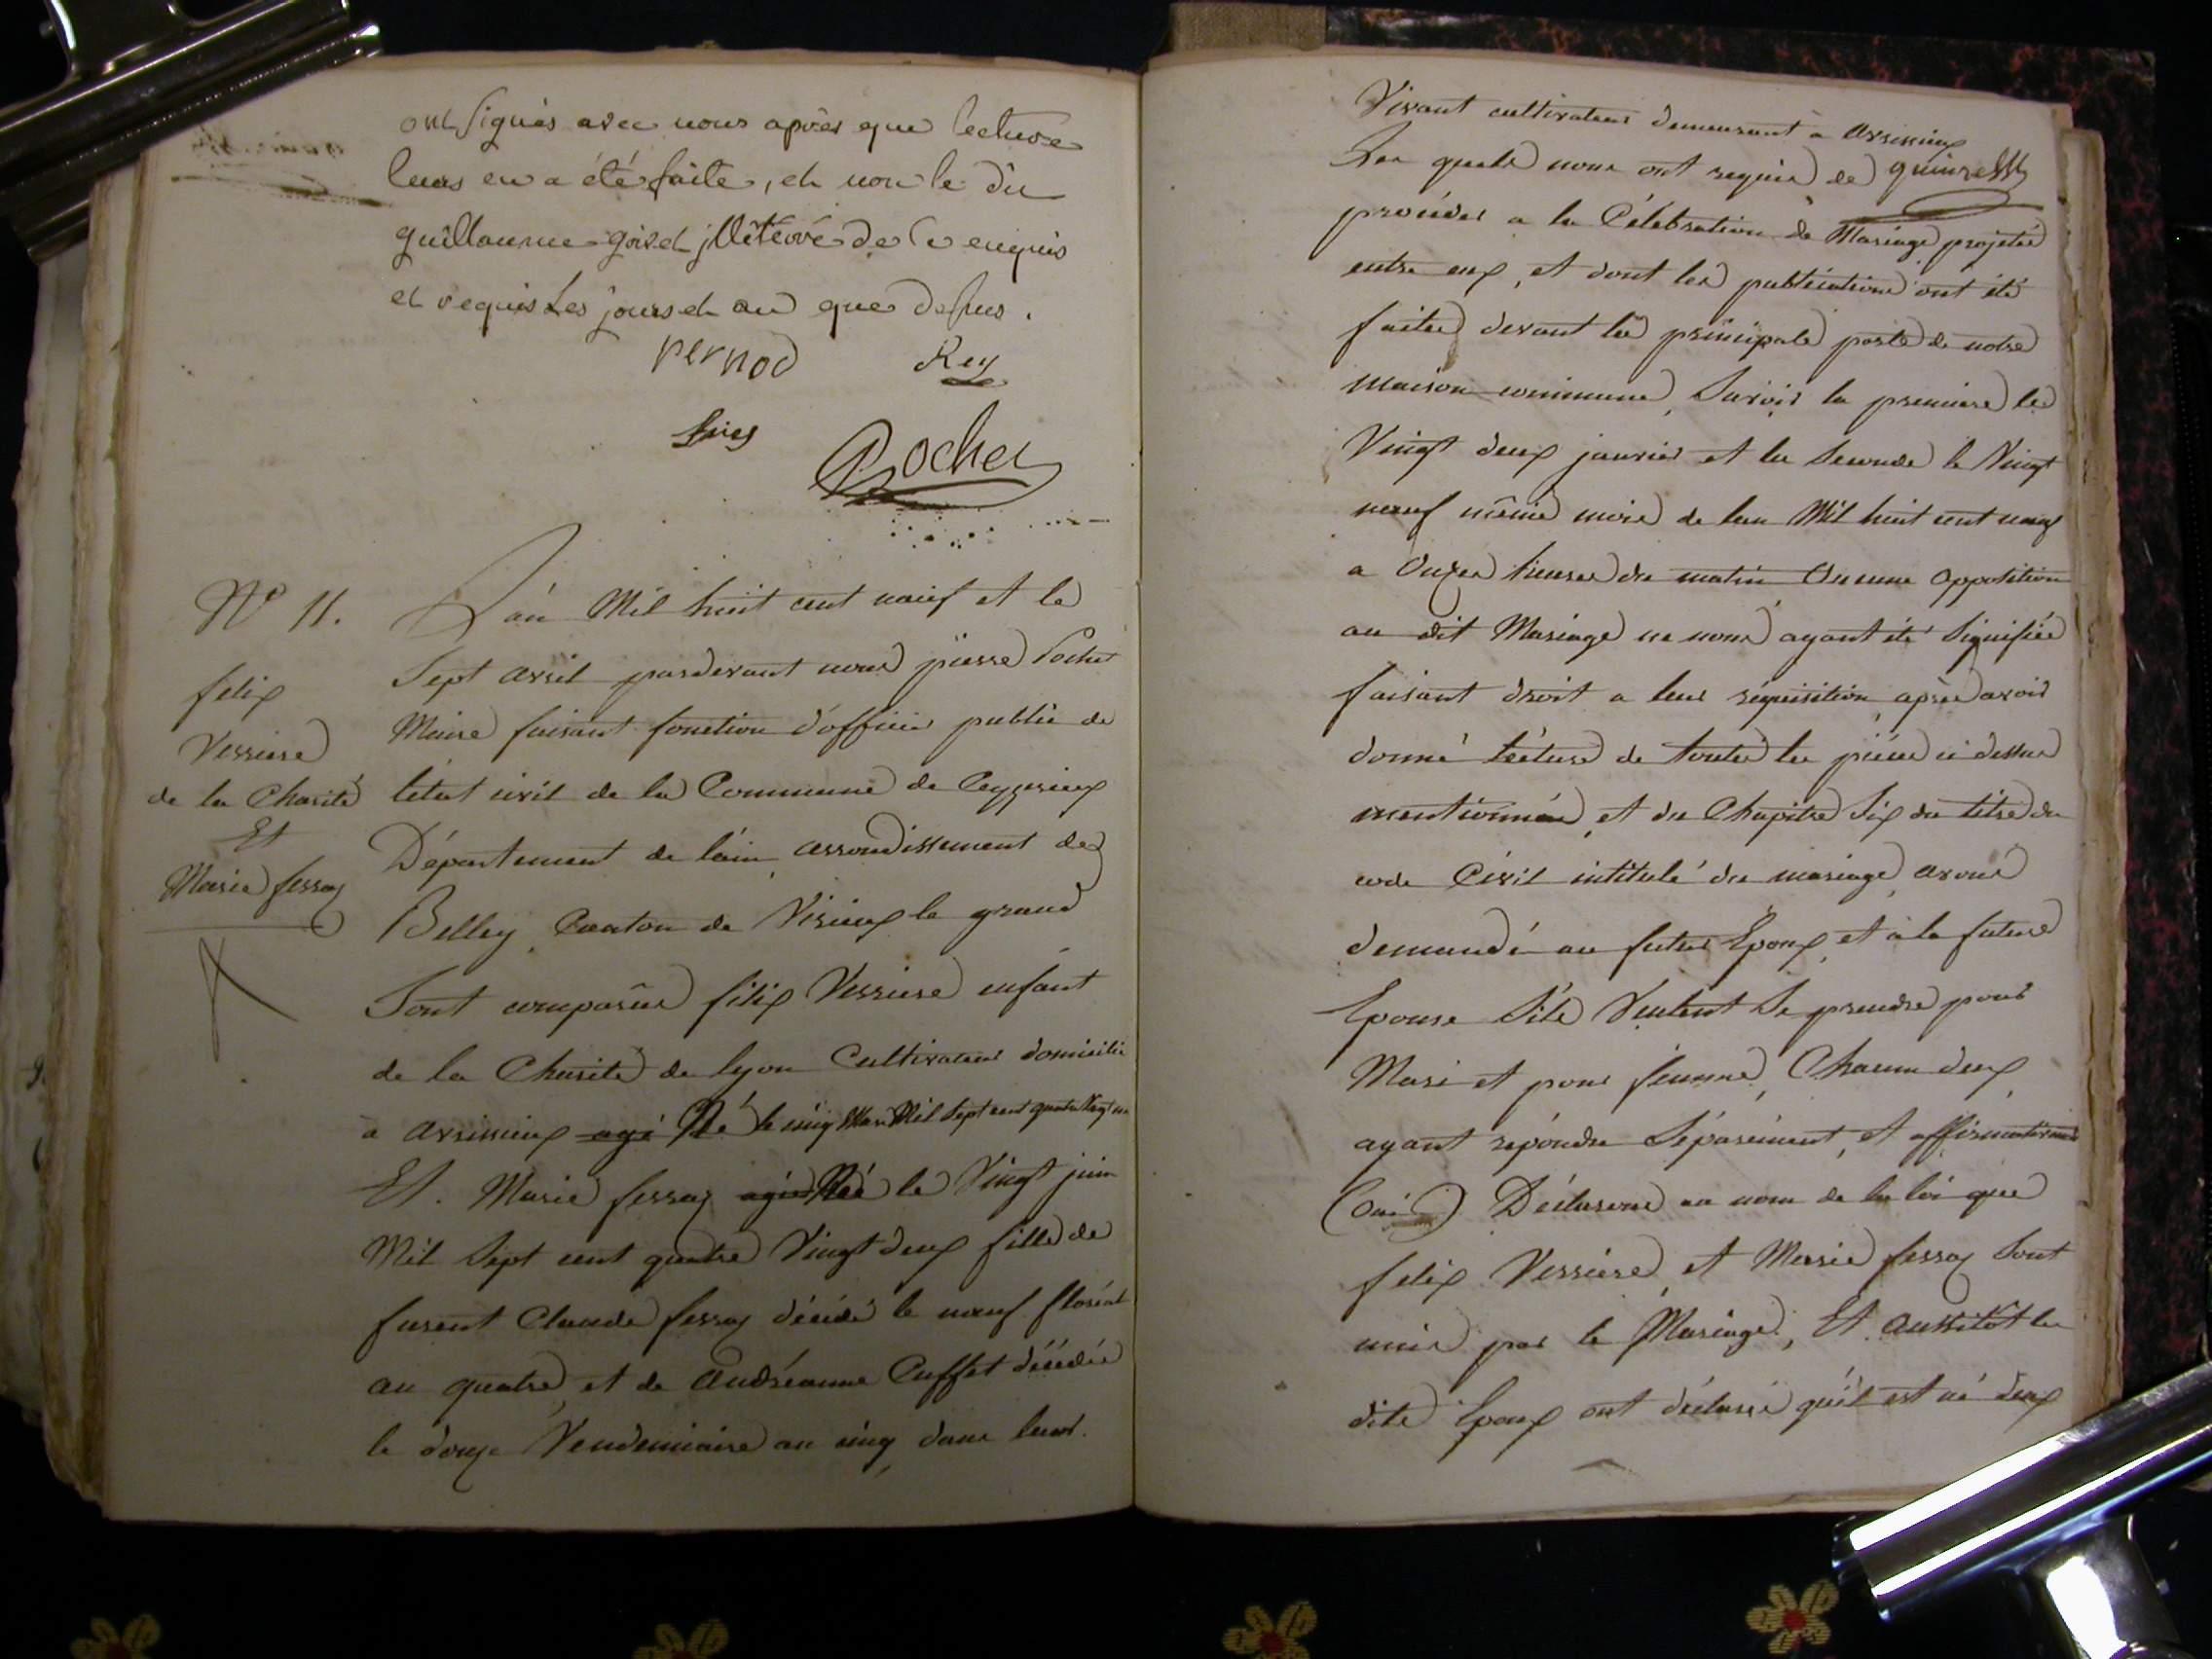 ont signés avec nous après que lecture
leurs en a été faite, et non le dit
guillaume goirel jlletéré de ce enquis
et requis Les jours et an que desus.
pernod Rey
Rochet
N° 11.
felix
Verriere
de la Charité
Et
Marie ferroz
L'an Mil huit cent neuf et le
Sept avril pardevant nous pierre Rochet
Maire faisant fonction d'officier public de
létat civil de la Commune de Ceyzerieux
Département de l'ain, arrondissement de
Belley, Canton de Virieux le grand
Sont comparus felix Verriere enfant
de la Charité de lyon Cultivateur domicilié
à avrissieux agé Né le cinq Mars Mil Sept cent quatre Vingt un
Et. Marie ferroz agée Née le Vingt juin
Mil Sept cent quatre Vingt deux fille de
furent Claude ferroz décédé le neuf floréal
an quatre, et de Andréanne Cuffet décédée
le douze Vendemiaire an cinq, dans leur
Vivant cultivateur demeurant à avrissieux
Les quels nous ont requis de
procéder a la Célébration de Mariage projetée
entre eux, et dont les publications ont été
faites devant la principale porte de notre
maison commune, Savoir la premiere le
Vingt deux janvier et la Seconde le Vingt
neuf même mois de lan Mil huit cent neuf
a Onzes heures du matin Aucune opposition
au dit Mariage ne nous ayant été Signifiée
faisant droit a leur réquisition, après avoir
donné lécture de toutes les pièces ci dessus
mentionnées, et du Chapitre Six du titre du
code Civil intitulé du mariage, avons
demandé au futur Epoux, et à la future
Epouse S'ils Veulent Se prendre pour
Mari et pour femme, Chacun deux
ayant répondu Séparément, et affirmativement
(Oui) Déclarons au nom de la loi que
felix Verriere, et Marie ferroz Sont
unis par le Mariage, Et aussitôt les
dits Epoux ont déclaré qu'il est né deux